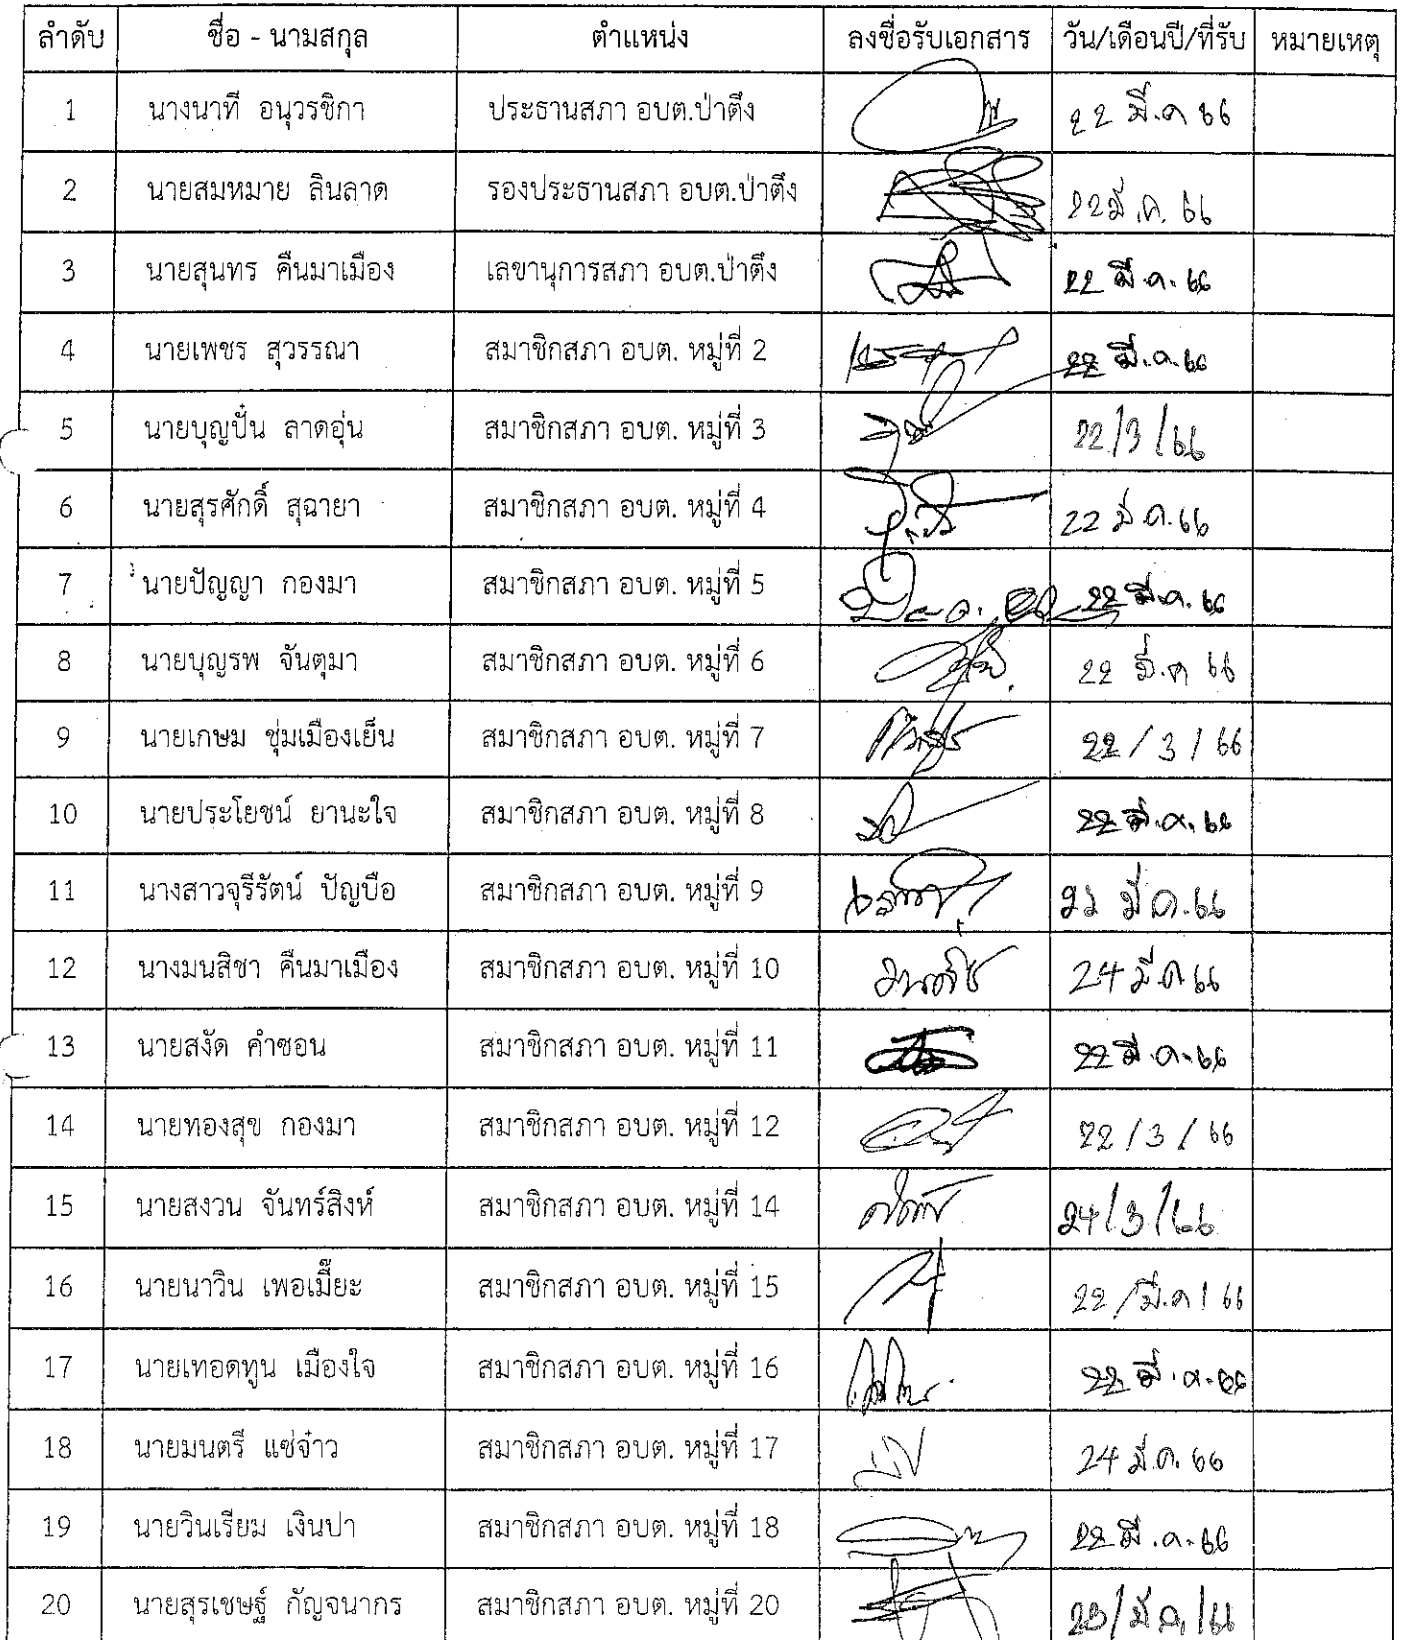 ลำดับ ชื่อ - นามสกุล ตำแหน่ง ลงชื่อรับเอกสาร วัน/เดือนปี/ที่รับ หมายเหตุ
1 นางนาที อนุวรชิกา ประธานสภา อบต.ป่าตึง 22 มี.ค 66
2 นายสมหมาย ลินลาด รองประธานสภา อบต.ป่าตึง 22 มี.ค. 66
3 นายสุนทร คืนมาเมือง เลขานุการสภา อบต.ป่าตึง 22 มี.ค. 66
4 นายเพชร สุวรรณา สมาชิกสภา อบต. หมู่ที่ 2 22 มี.ค.66
5 นายบุญปั๋น ลาดอุ่น สมาชิกสภา อบต. หมู่ที่ 3 22/3/66
6 นายสุรศักดิ์ สุฉายา สมาชิกสภา อบต. หมู่ที่ 4 22 มี.ค.66
7 นายปัญญา กองมา สมาชิกสภา อบต. หมู่ที่ 5 22 มี.ค. 66
8 นายบุญรพ จันตุมา สมาชิกสภา อบต. หมู่ที่ 6 22 มี.ค 66
9 นายเกษม ชุ่มเมืองเย็น สมาชิกสภา อบต. หมู่ที่ 7 22/3/66
10 นายประโยชน์ ยานะใจ สมาชิกสภา อบต. หมู่ที่ 8 22 มี.ค. 66
11 นางสาวจุรีรัตน์ ปัญบือ สมาชิกสภา อบต. หมู่ที่ 9 มี.ค.66
12 นางมนสิชา คืนมาเมือง สมาชิกสภา อบต. หมู่ที่ 10 มนสิชา 24 มี.ค 66
13 นายสงัด คำซอน สมาชิกสภา อบต. หมู่ที่ 11 22 มี.ค.66
14 นายทองสุข กองมา สมาชิกสภา อบต. หมู่ที่ 12 22/3/66
15 นายสงวน จันทร์สิงห์ สมาชิกสภา อบต. หมู่ที่ 14 24/3/66
16 นายนาวิน เพอเมี๊ยะ สมาชิกสภา อบต. หมู่ที่ 15 22/มี.ค/66
17 นายเทอดทูน เมืองใจ สมาชิกสภา อบต. หมู่ที่ 16 22 มี.ค.66
18 นายมนตรี แซ่จ๋าว สมาชิกสภา อบต. หมู่ที่ 17 24 มี.ค. 66
19 นายวินเรียม เงินปา สมาชิกสภา อบต. หมู่ที่ 18 22 มี.ค.66
20 นายสุรเชษฐ์ กัญจนากร สมาชิกสภา อบต. หมู่ที่ 20 23/มี.ค./66